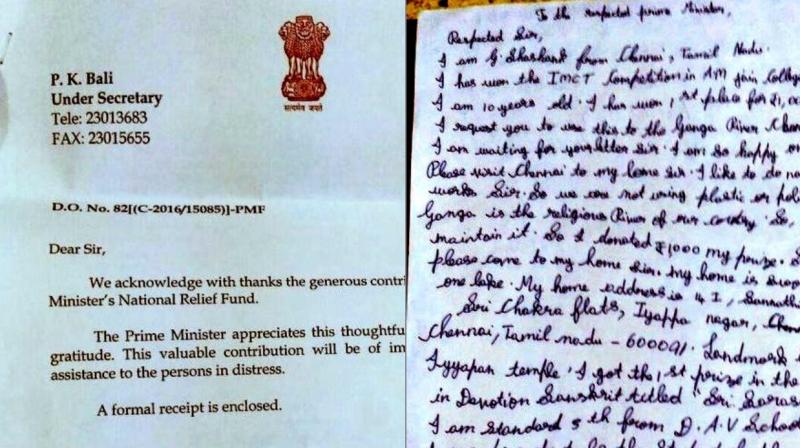 P. K. Bali
Under Secretary
Tele: 23013683
FAX: 23015655
सत्यमेव जयते
D.O. No. 82[(C-2016/15085)]-PMF
Dear Sir,
We acknowledge with thanks the generous contri
Minister's National Relief Fund.
The Prime Minister appreciates this thoughtfu
gratitude. This valuable contribution will be of im
assistance to the persons in distress.
A formal receipt is enclosed.
To the respected prime Minister,
Respected Sir,
I am G. Shashank from Chennai, Tamil Nadu.
I has won the IMCT Competition in AM Jain Colleg
I am 10 years old. I has won 1st place for ₹1,00
I request you to use this to the Ganga River Clean
I am waiting for your letter sir. I am so happy
Please visit Chennai to my home sir. I like to do
works Sir. So we are not using plastic or
Ganga is the religious River of our country. So,
maintain it. So I donated ₹1000 my prize.
please come to my home sir. my home is
one lake. My home address is 4 I,
Sri Chakra flats, Iyappa nagar,
Chennai, Tamil nadu - 600091. Landmark
Iyyapan temple. I got the 1st prize in the
in Devotion Sanskrit titled "Sri Saras
I am standard 5th from D.A.V School